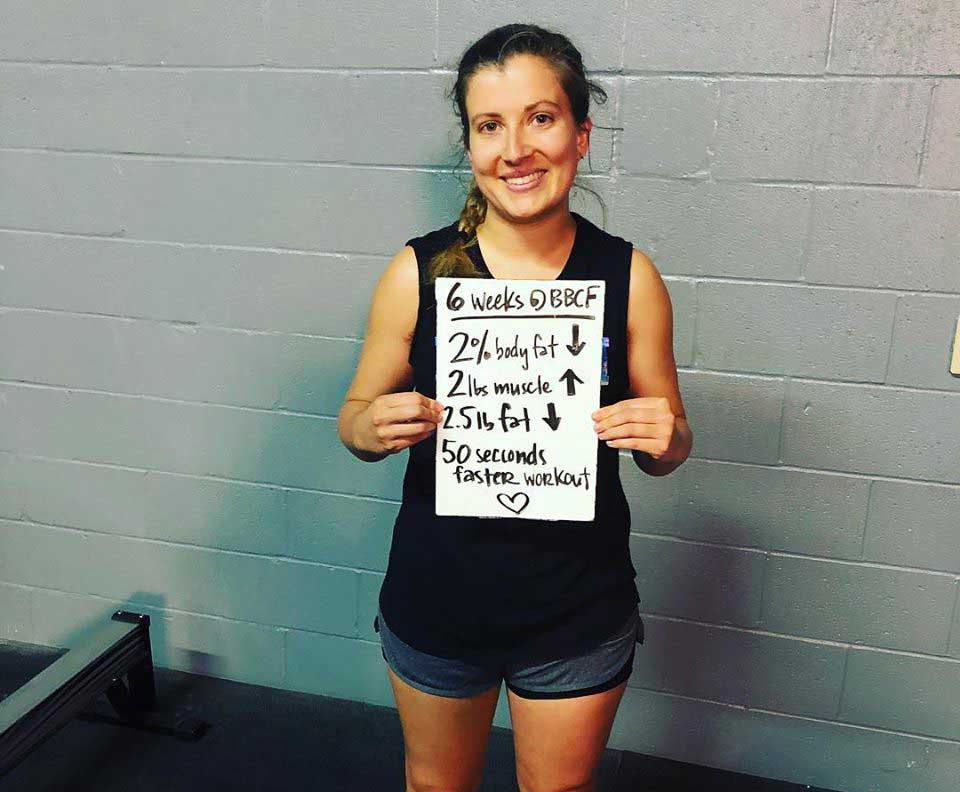 6 weeks @ BBCF
2% body fat ↓
2 lbs muscle ↑
2.5 lb fat ↓
50 seconds
faster workout
♡